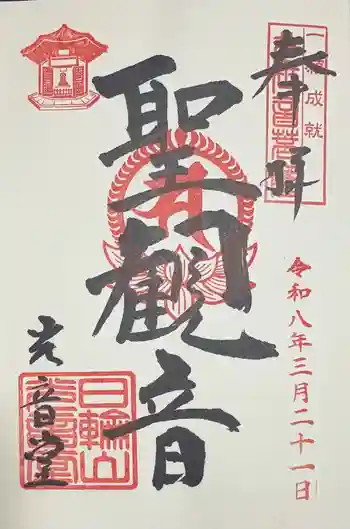 奉拝
一願成就
令和八年三月二十一日
聖観音
光音堂
日輪山